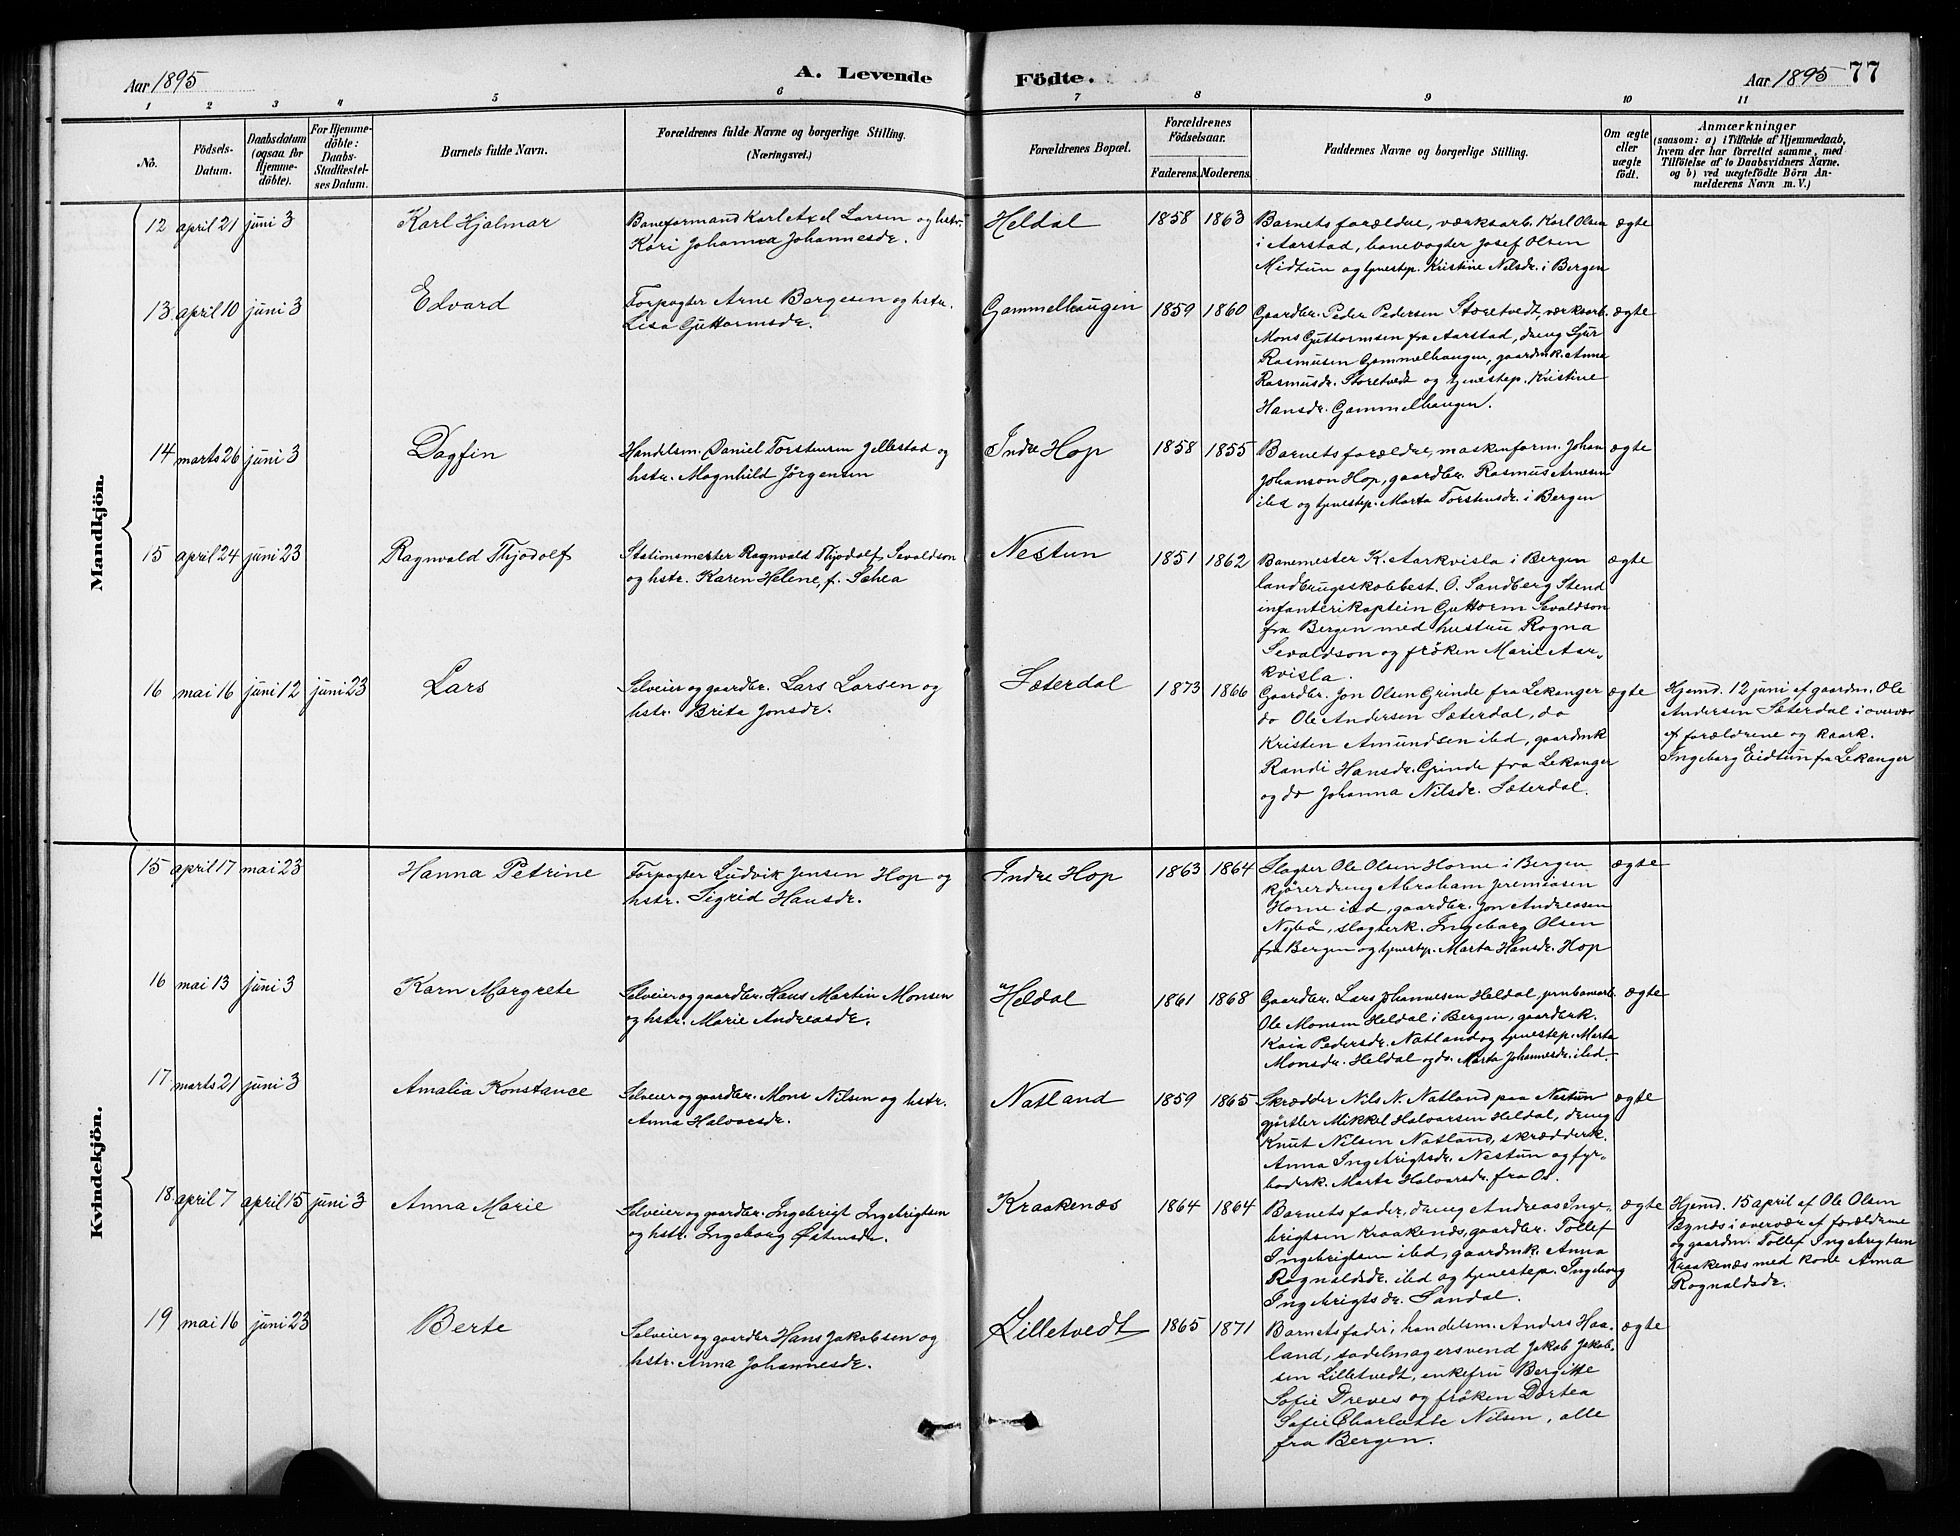 Aar 1895
A. Levende
Födte.
Aar 1895 77
1 2 3 4 5 6 7 8 9 10 11
No.
Födsels-
Datum.
Daabsdatum
(ogsaa for
Hjemme-
döbte).
For Hjemme-
döbte:
Daabs-
Stadfæstel-
ses Datum.
Barnets fulde Navn.
Forældrenes fulde Navne og borgerlige Stilling.
(Næringsvei.)
Forældrenes Bopæl.
Forældrenes
Födselsaar.
Faderens. Moderens.
Faddernes Navne og borgerlige Stilling.
Om ægte
eller
uægte
födt.
Anmærkninger
(saasom: a) i Tilfælde af Hjemmedaab,
hvem der har forrettet samme, med
Tilföielse af to Daabsvidners Navne.
og b) ved uægtefödte Börn An-
melderens Navn m. V.)
Mandkjön.
12 april 21 juni 3
Karl Hjalmar
Baneformand Karl Axel Larsen og hstr.
Kari Johanna Johannesdr.
Heldal
1858 1863
Barnets forældre, værksarb. Karl Olsen
i Aarstad, banevogter Josef Olsen
Midtun og tjenestep. Kristine Nilsdr. i Bergen
ægte
13 april 10 juni 3
Edvard
Forpagter Arne Børgesen og hstr.
Lisa Guttormsdr.
Gammelhaugen
1859 1860
Gaardbr. Peder Pedersen Storetvedt, værksarb.
Mons Guttormsen fra Aarstad, dreng Sjur
Rasmusen Gammelhaugen, gaardmk. Anna
Rasmusdr. Storetvedt og tjenestep. Kristine
Hansdr. Gammelhaugen.
ægte
14 marts 26 juni 3
Dagfin
Handelsm. Daniel Torstensen Jellestad og
hstr. Magnhild Jörgensen
Indre Hop
1858 1855
Barnets forældre, maskinform. Johan
Johanson Hop, gaardbr. Rasmus Arnesen
ibd og tjenestep. Marta Torstensdr. i Bergen
ægte
15 april 24 juni 23
Ragnvald Thjodolf
Stationsmester Ragnvald Thjodolf Sevaldson
og hstr. Karen Helene, f. Schea
Nestun
1851 1862
Banemester K. Aarkvisla i Bergen
landbrugsskolebest. O. Sandberg Stend
infanterikaptein Guttorm Sevaldson
fra Bergen med hustru Ragna
Sevaldson og fröken Marie Aar-
kvisla.
ægte
16 mai 16 juni 12 juni 23
Lars
Selveier og gaardbr. Lars Larsen og
hstr. Brita Jonsdr.
Sæterdal
1873 1866
Gaardbr. Jon Olsen Grinde fra Lekanger
do Ole Andersen Sæterdal, do
Kristen Amundsen ibd, gaardmk
Randi Hansdr. Grinde fra Lekanger
og do Johanna Nilsdr. Sæterdal.
ægte
Hjemd. 12 juni af gaardm. Ole
Andersen Sæterdal i overvær
af forældrene og
Ingeborg Eidtun fra Lekanger
Kvindekjön.
15 april 17 mai 23
Hanna Petrine
Forpagter Ludvik Jensen Hop og
hstr. Sigrid Hansdr.
Indre Hop
1863 1864
Slagter Ole Olsen Horne i Bergen
kjörerdreng Abraham Jeremiasen
Horne ibd, gaardbr. Jon Andreasen
Nybö, slagterk. Ingeborg Olsen
fra Bergen og tjenestp. Marta Hansdr. Hop
ægte
16 mai 13 juni 3
Karn Margrete
Selveier og gaardbr. Hans Martin Monsen
og hstr. Marie Andreasdr.
Heldal
1861 1868
Gaardbr. Lars Johannesen Heldal, jernbanearb.
Ole Monsen Heldal i Bergen, gaardbrk.
Kaia Pedersdr. Natland og tjenestep. Marta
Monsdr. Heldal og do. Marta Johannesdr. ibd
ægte
17 marts 21 juni 3
Amalia Konstance
Selveier og gaardbr. Mons Nilsen og hstr.
Anna Halvorsdr.
Natland
1859 1865
Skrædder Nils N. Natland paa Nestun
gjörtler Mikkel Halvorsen Heldal, dreng
Knut Nilsen Natland, skrædderk.
Anna Ingebrigtsdr. Nestun og fyr-
böderk. Marta Halvorsdr. fra Os.
ægte
18 april 7 april 15 juni 3
Anna Marie
Selveier og gaardbr. Ingebrigt Ingebrigtsen
og hstr. Ingeborg Østensdr.
Kraakenæs
1864 1864
Barnets fader, dreng Andreas Inge-
brigtsen Kraakenæs, gaardbr. Tollef
Ingebrigtsen ibd, gaardmk. Anna
Rognaldsdr. ibd og tjenestep. Ingeborg
Ingebrigtsdr. Sandal.
ægte
Hjemd. 15 april af Ole Olsen
Bynæs i overvær af forældrene
og gaardm. Tollef Ingebrigtsen
Kraakenæs med kone Anna
Rognaldsdr.
19 mai 16 juni 23
Berte
Selveier og gaardbr Hans Jakobsen og
hstr. Anna Johannesdr.
Lilletvedt
1865 1871
Barnets fader, handelsm. Anders Haa-
land, sadelmagersvend Jakob Jakob-
sen Lilletvedt, enkefru Bergitte
Sofie Dreves og fröken Dortea
Sofie Charlotte Nilsen, alle
fra Bergen.
ægte